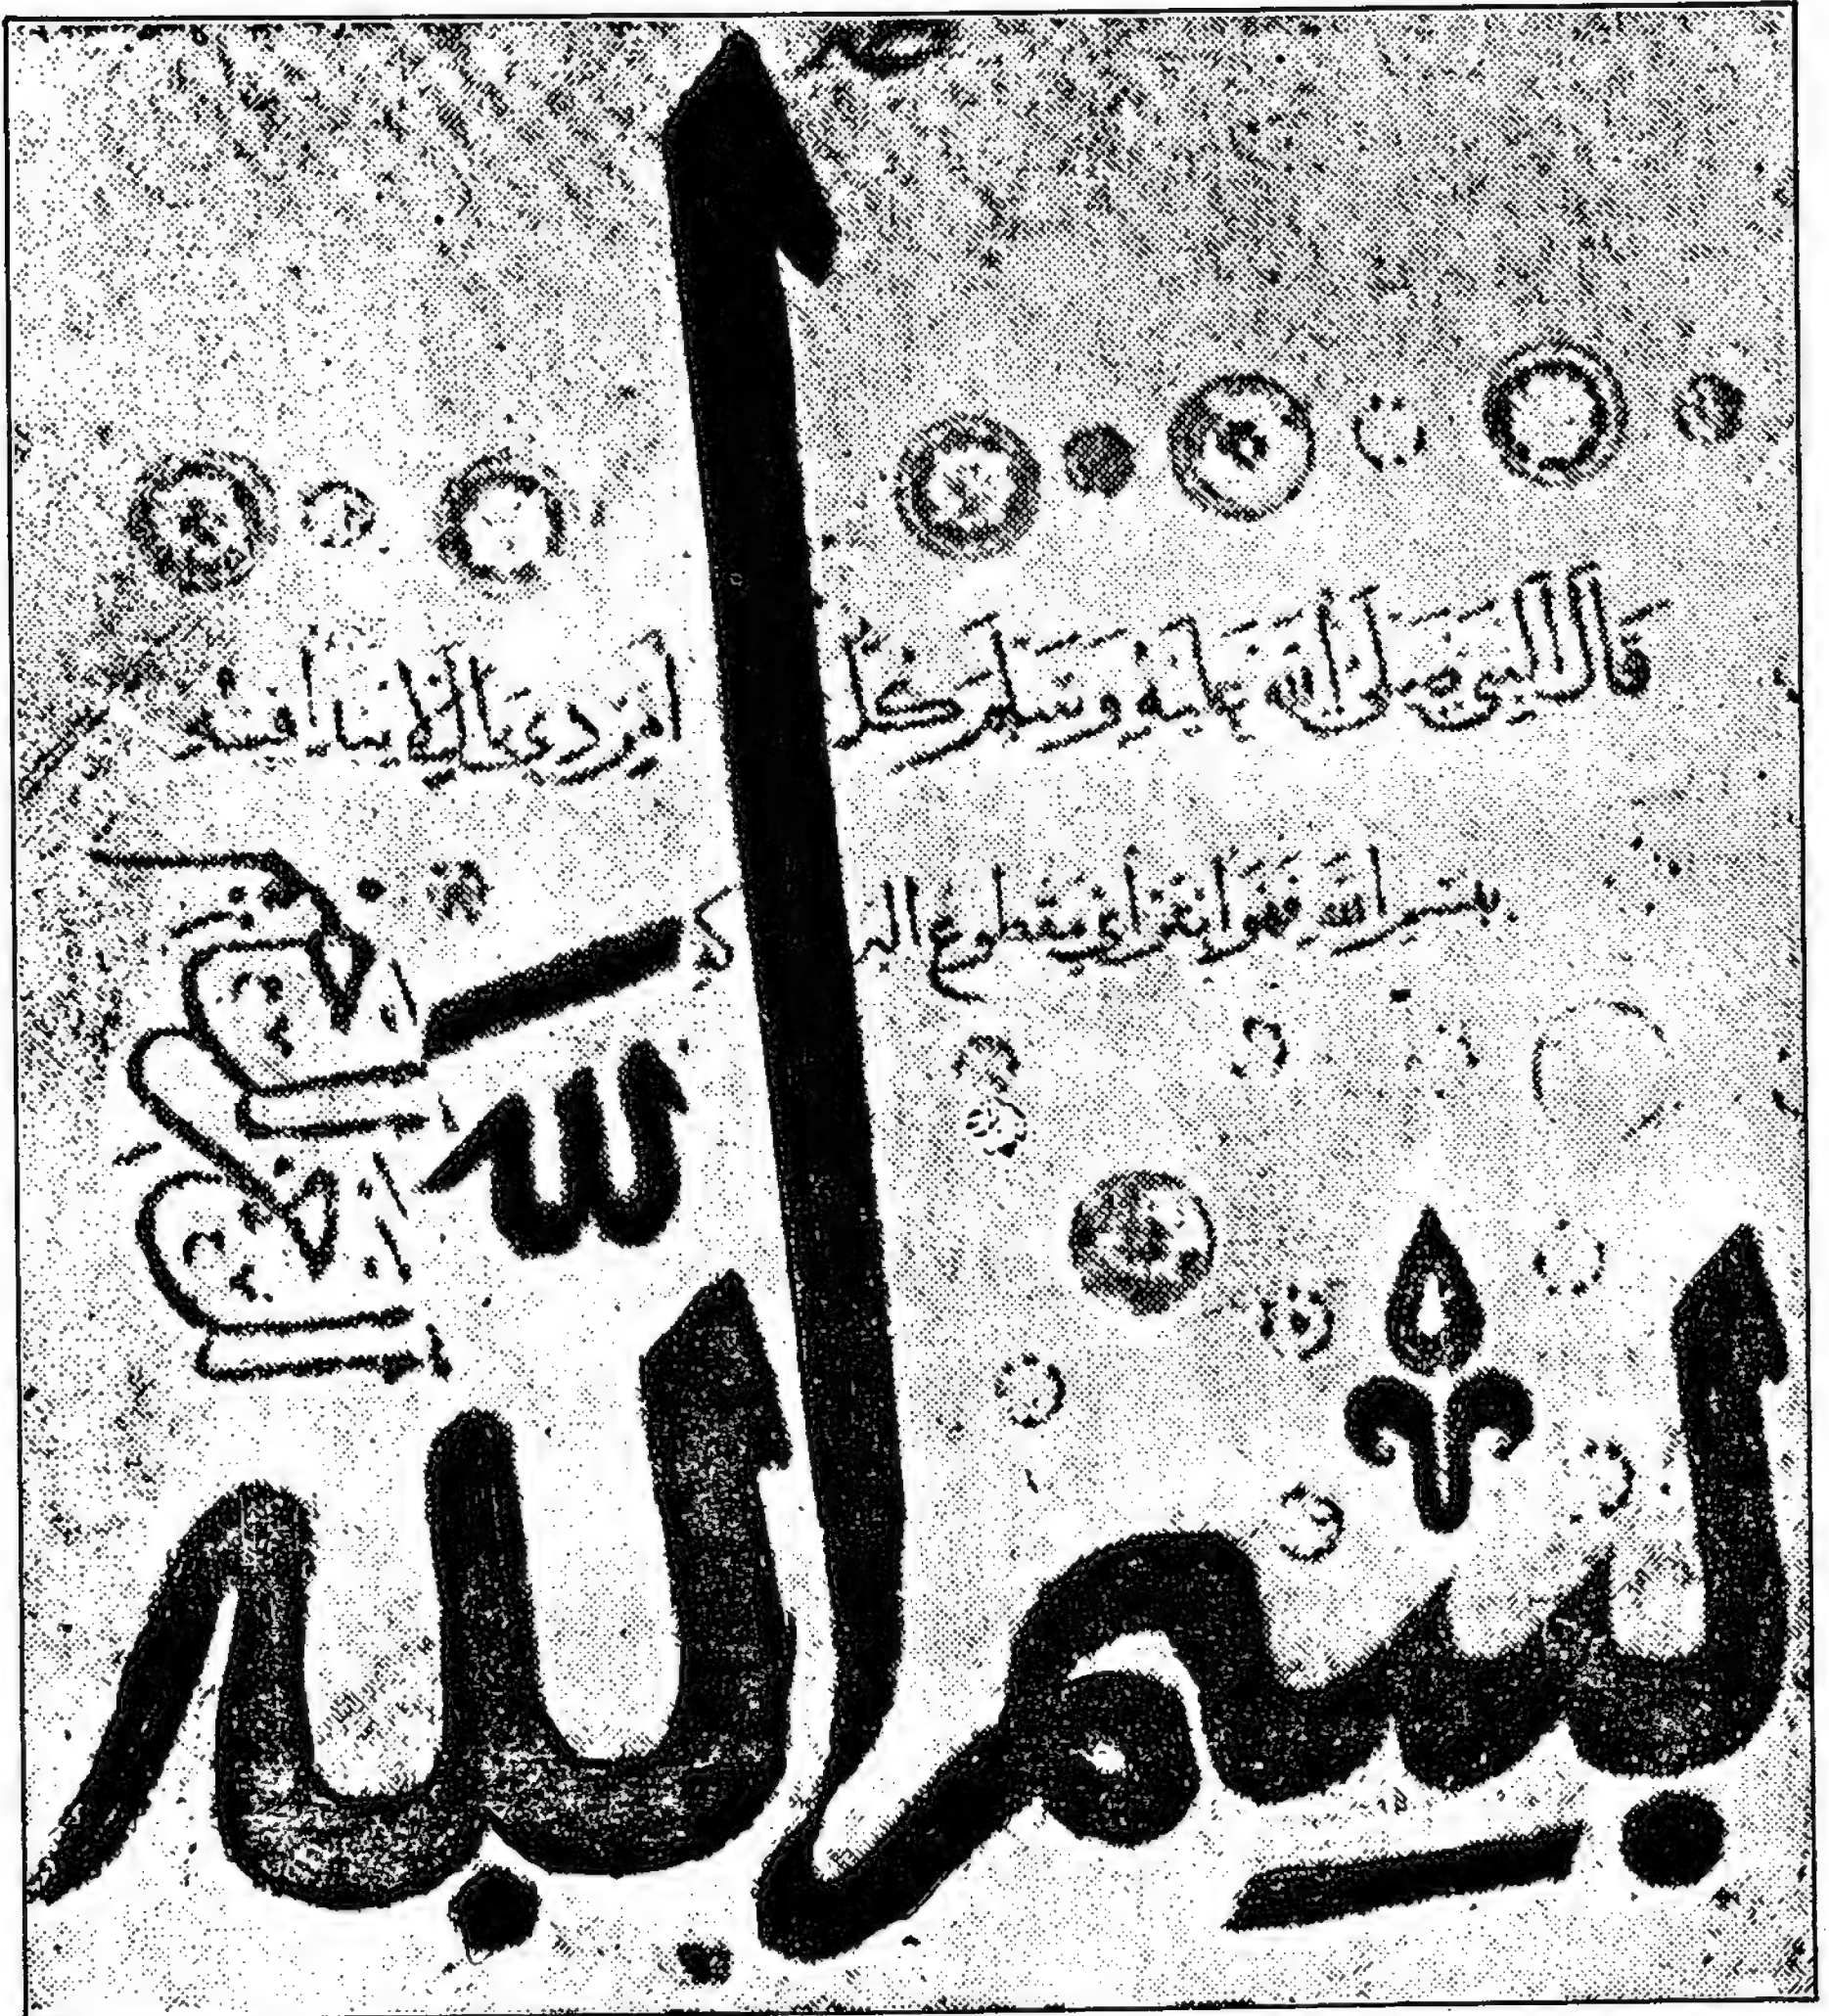 قال النبي صلى الله عليه وسلم كل امر ذي بال لا يبدا فيه
ببسم الله فهو ابتر اي مقطوع البركة
بسم الله